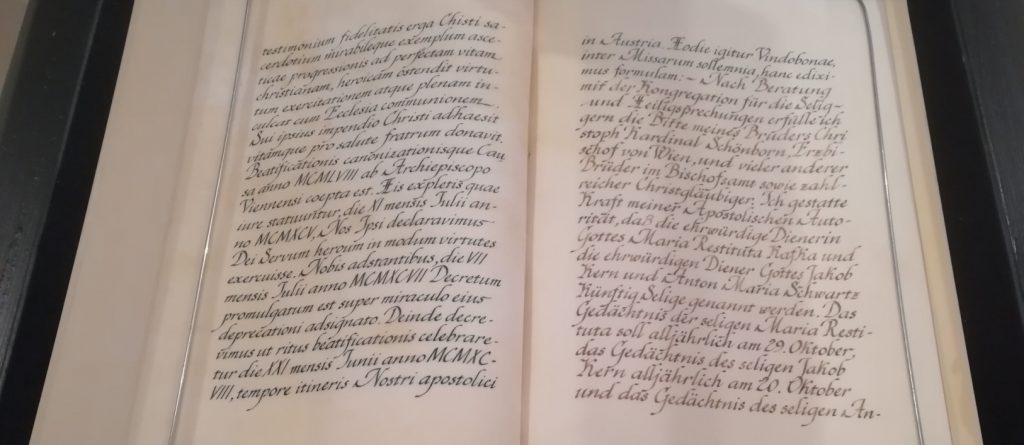 testimonium fidelitatis erga Christi sa-
cerdotium mirabileque exemplum asce-
ticae progressionis ad perfectam vitam
christianam, heroicam ostendit virtu-
tum exercitationem atque plenam in-
culcat cum Ecclesia communionem.
Sui ipsius impendio Christi adhaesit
vitamque pro salute fratrum donavit.
Beatificationis canonizationisque Cau
sa anno MCMLVIII ab Archiepiscopo
Viennensi coepta est. His expletis quae
iure statuuntur, die XI mensis Iulii an-
no MCMXCV, Nos Ipsi declaravimus
Dei Servum heroum in modum virtutes
exercuisse. Nobis adstantibus, die VII
mensis Iulii anno MCMXCVII Decretum
promulgatum est super miraculo eius
deprecationi adsignato. Deinde decre-
vimus ut ritus beatificationis celebrare-
tur die XXI mensis Iunii anno MCMXC-
VIII, tempore itineris Nostri apostolici
in Austria. Hodie igitur Vindobonae,
inter Missarum sollemnia, hanc edixi-
mus formulam: – Nach Beratung
mit der Kongregation für die Selig-
und Heiligsprechungen erfülle ich
gern die Bitte meines Bruders Chri
stoph Kardinal Schönborn, Erzbi-
schof von Wien, und vieler anderer
Brüder im Bischofsamt sowie zahl-
reicher Christgläubiger: Ich gestatte
Kraft meiner Apostolischen Auto-
rität, daß die ehrwürdige Dienerin
Gottes Maria Restituta Kafka und
die ehrwürdigen Diener Gottes Jakob
Kern und Anton Maria Schwartz
Künftig Selige genannt werden. Das
Gedächtnis der seligen Maria Resti-
tuta soll alljährlich am 29. Oktober,
das Gedächtnis des seligen Jakob
Kern alljährlich am 20. Oktober
und das Gedächtnis des seligen An-